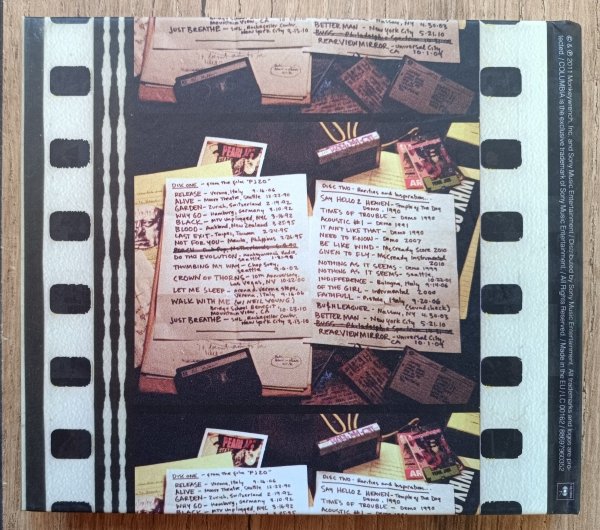 JUST BREATHE - SNL, Rockefeller Center
New York City 3.13.10
BETTER MAN - New York City
5.21.10
REARVIEWMIRROR - Universal City,
CA 10.1.04
DISK ONE - from the film "PJ20"
RELEASE - Verona, Italy 9.16.06
ALIVE - Moore Theatre, Seattle 12.22.90
GARDEN - Zurich, Switzerland 2.19.92
WHY GO - Hamburg, Germany 3.10.92
BLACK - MTV Unplugged, NYC 3.16.92
BLOOD - Auckland, New Zealand 3.25.95
LAST EXIT - Taipei, Taiwan 2.24.95
NOT FOR YOU - Manila, Philippines 2.26.95
DO THE EVOLUTION - Monkeywrench Radio
Seattle 1.31.98
THUMBING MY WAY - Chop Suey,
Seattle 9.6.02
CROWN OF THORNS - 10th Anniversary,
Las Vegas, NV 10.22.00
LET ME SLEEP - Arena, Verona,
Italy 9.16.06
WALK WITH ME (w/ NEIL YOUNG)
Bridge School Benefit
Mountain View, CA 10.23.10
JUST BREATHE - SNL, Rockefeller Center
New York City 3.13.10
DISC TWO - Rarities and Inspiration...
SAY HELLO 2 HEAVEN - Temple of the Dog
Demo 1990
TIMES OF TROUBLE - Demo 1990
ACOUSTIC #1 - Demo 1991
IT AIN'T LIKE THAT - Demo 1990
NEED TO KNOW - Demo 2007
BE LIKE WIND - McCready Score 2010
GIVEN TO FLY - McCready Instrumental
2010
NOTHING AS IT SEEMS - Demo 1999
NOTHING AS IT SEEMS - Seattle,
10.22.01
INDIFFERENCE - Bologna, Italy
9.14.06
OF THE GIRL - Instrumental 2000
FAITHFULL - Pistoia, Italy 9.20.06
(soundcheck)
BUSHLEAGUER - Nassau, NY 4.30.03
BETTER MAN - New York City
5.21.10
REARVIEWMIRROR - Universal City,
CA 10.1.04
DISK ONE - from the film "PJ20"
RELEASE - Verona, Italy 9.16.06
ALIVE - Moore Theatre, Seattle 12.22.90
GARDEN - Zurich, Switzerland 2.19.92
WHY GO - Hamburg, Germany 3.10.92
BLACK - MTV Unplugged, NYC 3.16.92
DISC TWO - Rarities and Inspiration...
SAY HELLO 2 HEAVEN - Temple of the Dog
Demo 1990
TIMES OF TROUBLE - Demo 1990
ACOUSTIC #1 - Demo 1991
© & ℗ 2011 Monkeywrench, Inc. and Sony Music Entertainment / Distributed by Sony Music Entertainment. All trademarks and logos are pro-
tected. / COLUMBIA is the exclusive trademark of Sony Music Entertainment. / All Rights Reserved. / Made in the EU / LC 00162 / 88697963352